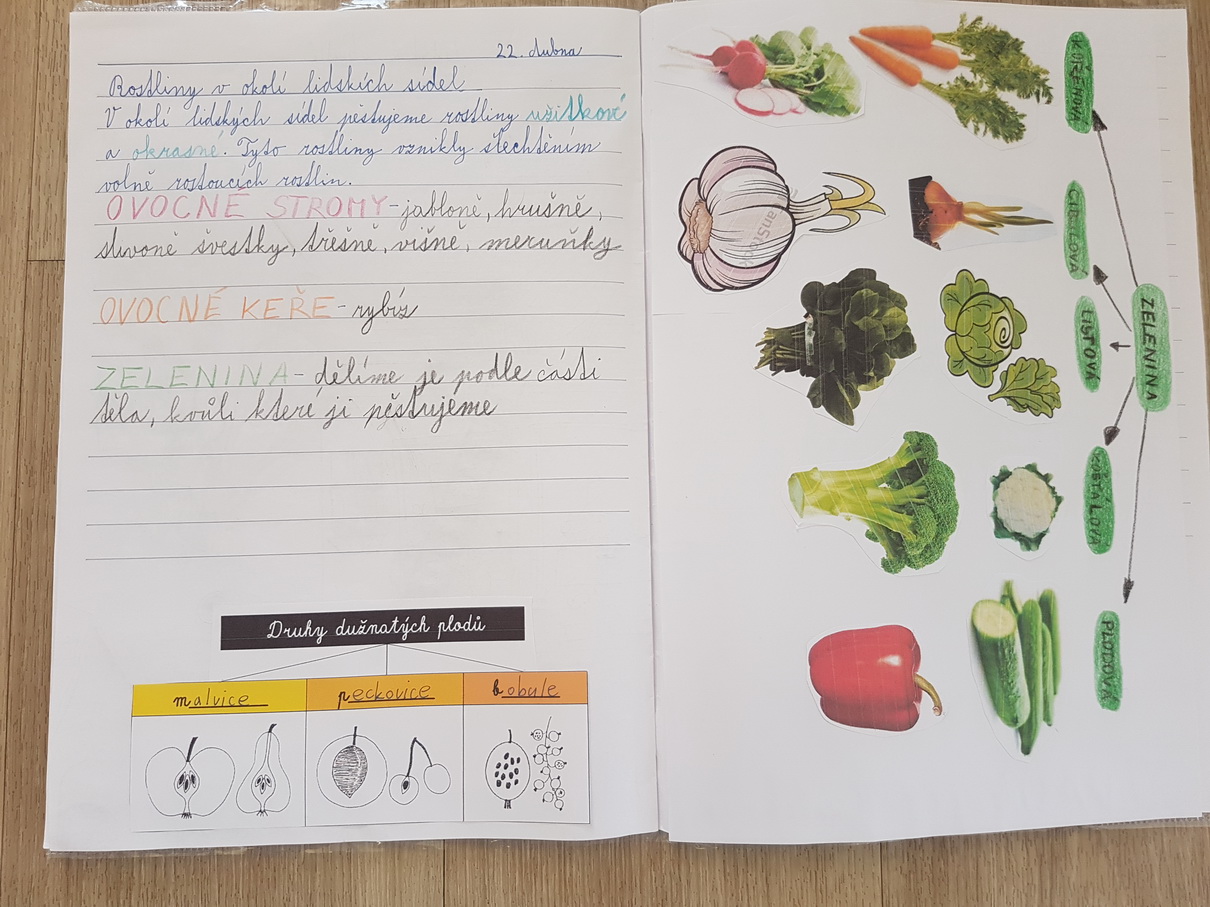 22. dubna
Rostliny v okolí lidskích sídel
V okolí lidských sídel pěstujeme rostliny užitkové
a okrasné. Tyto rostliny vznikly šlechtěním
volně rostoucích rostlin.
OVOCNÉ STROMY - jabloně, hrušně,
slivoně švestky, třešně, višně, meruňky
OVOCNÉ KEŘE - rybíz
ZELENINA - dělíme je podle části
těla, kvůli které ji pěstujeme
Druhy dužnatých plodů
malvice
peckovice
bobule
ZELENINA
KOŘENOVÁ
CIBULOVÁ
LISTOVÁ
KOŠŤÁLOVÁ
PLODOVÁ
anStock